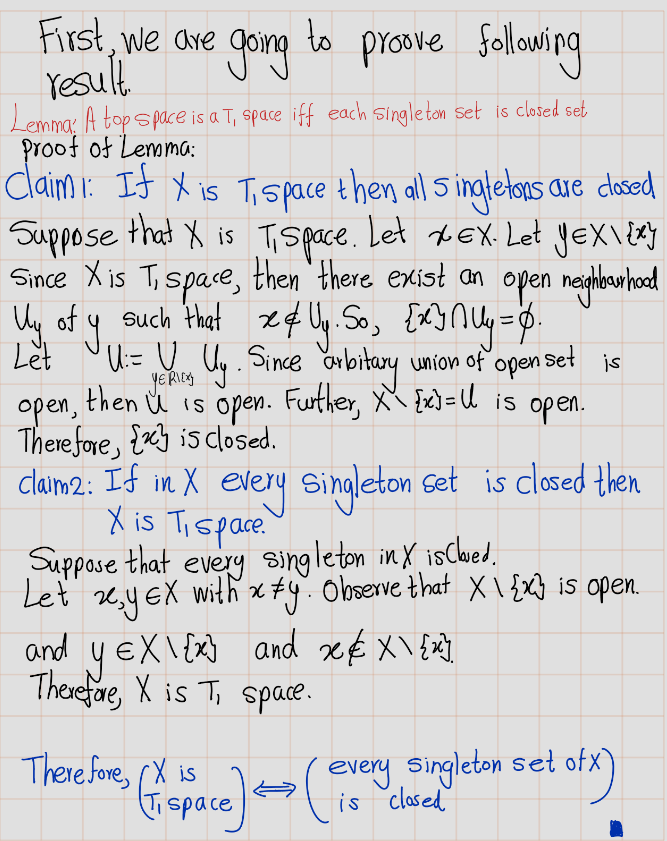 First, we are going to proove following
result.
Lemma: A top space is a T₁ space iff each singleton set is closed set
proof of Lemma:
Claim 1: If X is T₁ space then all singletons are closed
Suppose that X is T₁ space. Let x ∈ X. Let y ∈ X \ {x}
Since X is T₁ space, then there exist an open neighbourhood
U_y of y such that x ∉ U_y. So, {x} ∩ U_y = ϕ.
Let U := ∪_{y∈R\{x}} U_y. Since arbitary union of open set is
open, then U is open. Further, X \ {x} = U is open.
Therefore, {x} is closed.
claim 2: If in X every singleton set is closed then
X is T₁ space.
Suppose that every singleton in X is Closed.
Let x, y ∈ X with x ≠ y. Observe that X \ {x} is open.
and y ∈ X \ {x} and x ∉ X \ {x}.
Therefore, X is T₁ space.
Therefore, (X is T₁ space) ⟺ (every singleton set of X is closed)